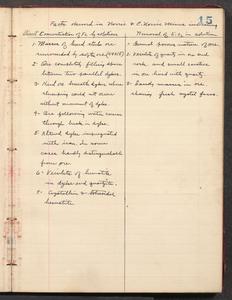 15
Facts observed in Norrie & E. Norrie mines indicating
Direct Concentration of Fe by solution
Removal of SiO2 in solution
1- Masses of hard steel ore
surrounded by soft ore
2- Ore completely filling space
between two parallel dykes.
3- Hard ore beneath dykes where
slumping could not occur
without movement of dykes.
4- Ore following water courses
through breaks in dykes.
5- Altered dykes impregnated
with iron. In some
cases hardly distinguishable
from ore.
6- Veinlets of hematite
in dykes and quartzite.
7- Crystalline &
hematite
1- General porous nature of ore.
2- Veinlets of quartz in ore and
rock and small cavities
in ore lined with quartz.
3- Sandy masses in ore
showing fresh crystal faces.